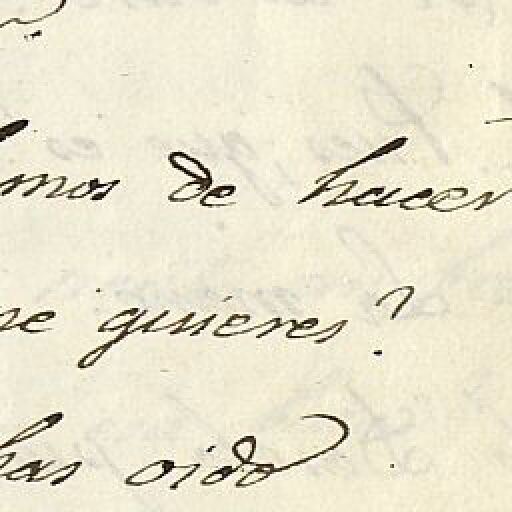 mos de hacer
quieres?
has oido